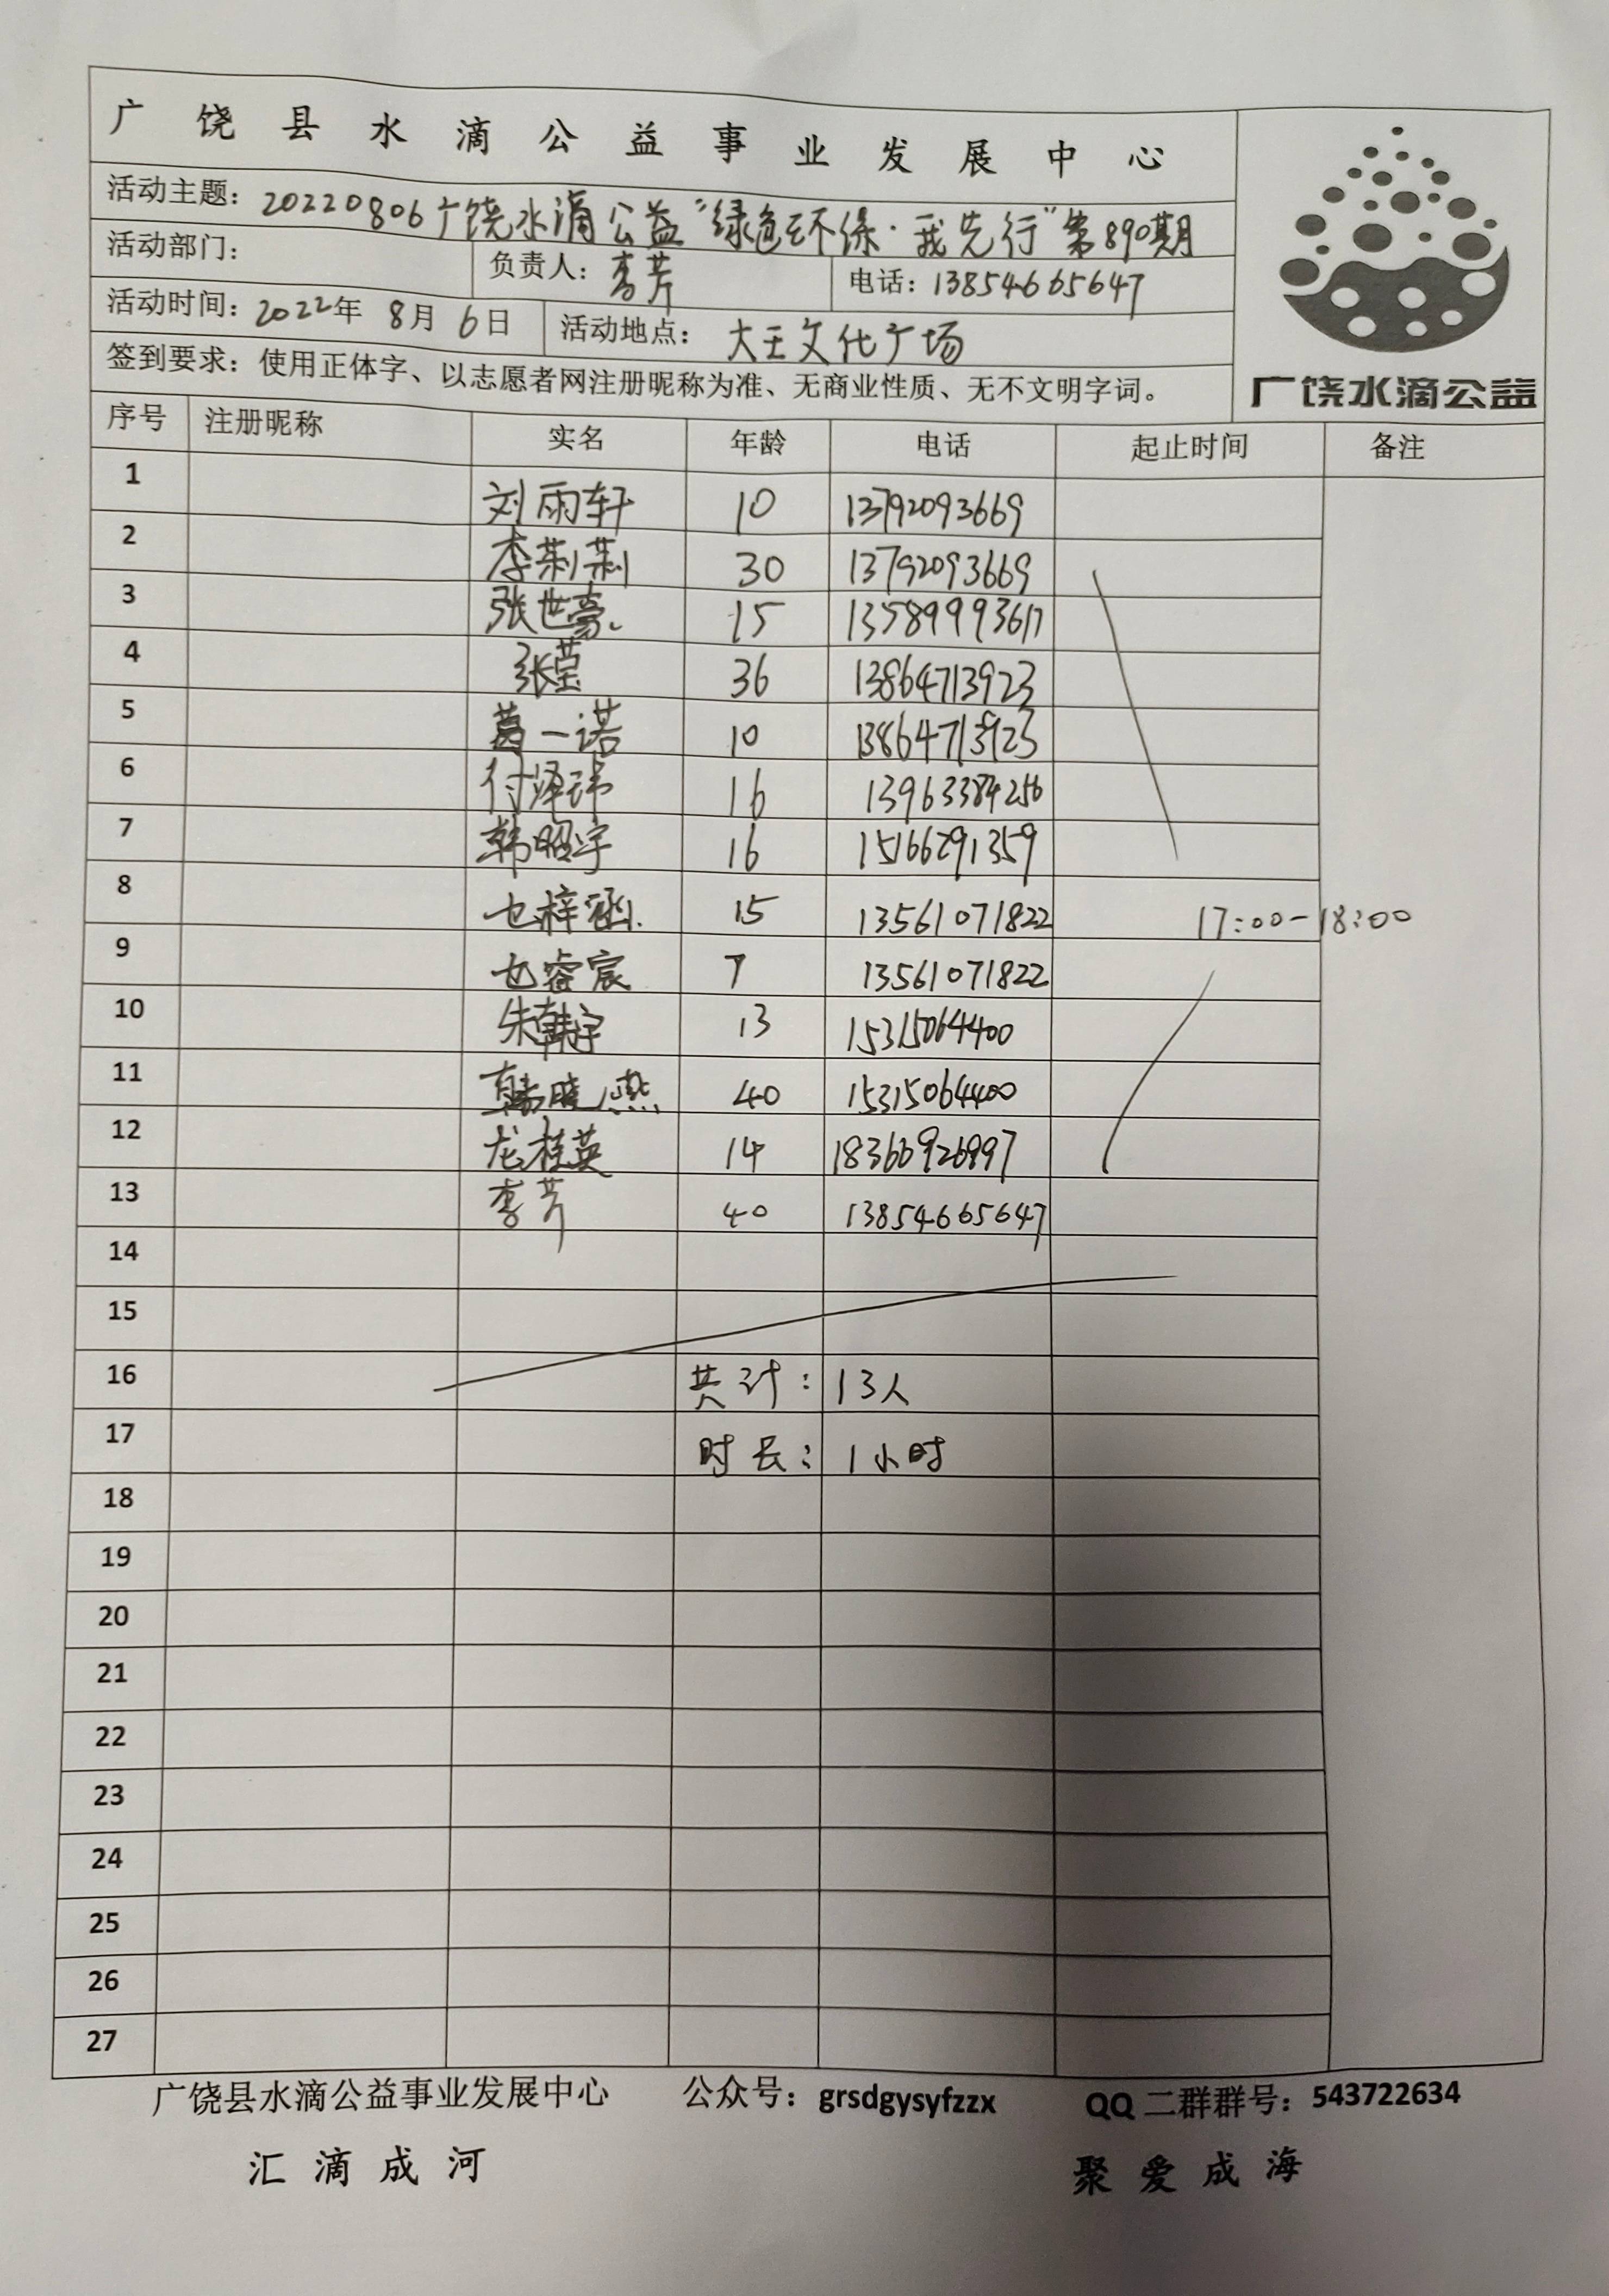 广饶县水滴公益事业发展中心
活动主题：20220806广饶水滴公益“绿色环保·我先行”第890期
活动部门： 负责人：李芹 电话：13854665647
活动时间：2022年 8月 6日 活动地点：大王文化广场
签到要求：使用正体字、以志愿者网注册昵称为准、无商业性质、无不文明字词。
广饶水滴公益
序号 注册昵称 实名 年龄 电话 起止时间 备注
1 刘雨轩 10 13792093669
2 李莉莉 30 13792093669
3 张世豪 15 13589993617
4 张莹 36 13864713923
5 葛一诺 10 13864713923
6 付泽玮 16 13963384256
7 韩昭宇 16 15166291359
8 梓涵 15 13561071822 17:00-18:00
9 睿宸 7 13561071822
10 朱韩宇 13 15315064400
11 韩晓燕 40 15315064400
12 龙桂英 14
13 李芹 40 13854665647
14
15
16 共计：13人
17 时长：1小时
18
19
20
21
22
23
24
25
26
27
广饶县水滴公益事业发展中心 公众号：grsdgysyfzzx QQ二群群号：543722634
汇滴成河 聚爱成海